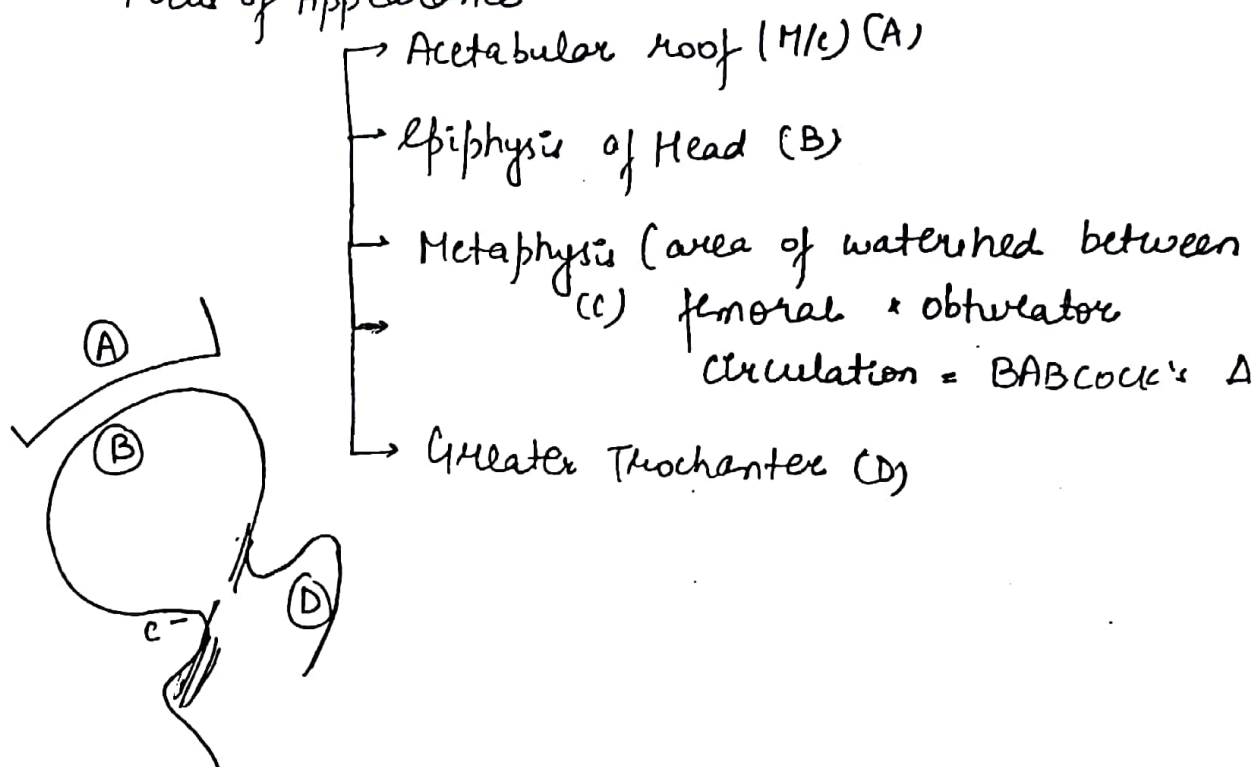 of
Acetabular roof (M/c) (A)
Epiphysis of Head (B)
Metaphysis (area of watershed between
(C) femoral & obturator
circulation = BABCOCK's Δ
Greater Trochanter (D)
A
B
D
C